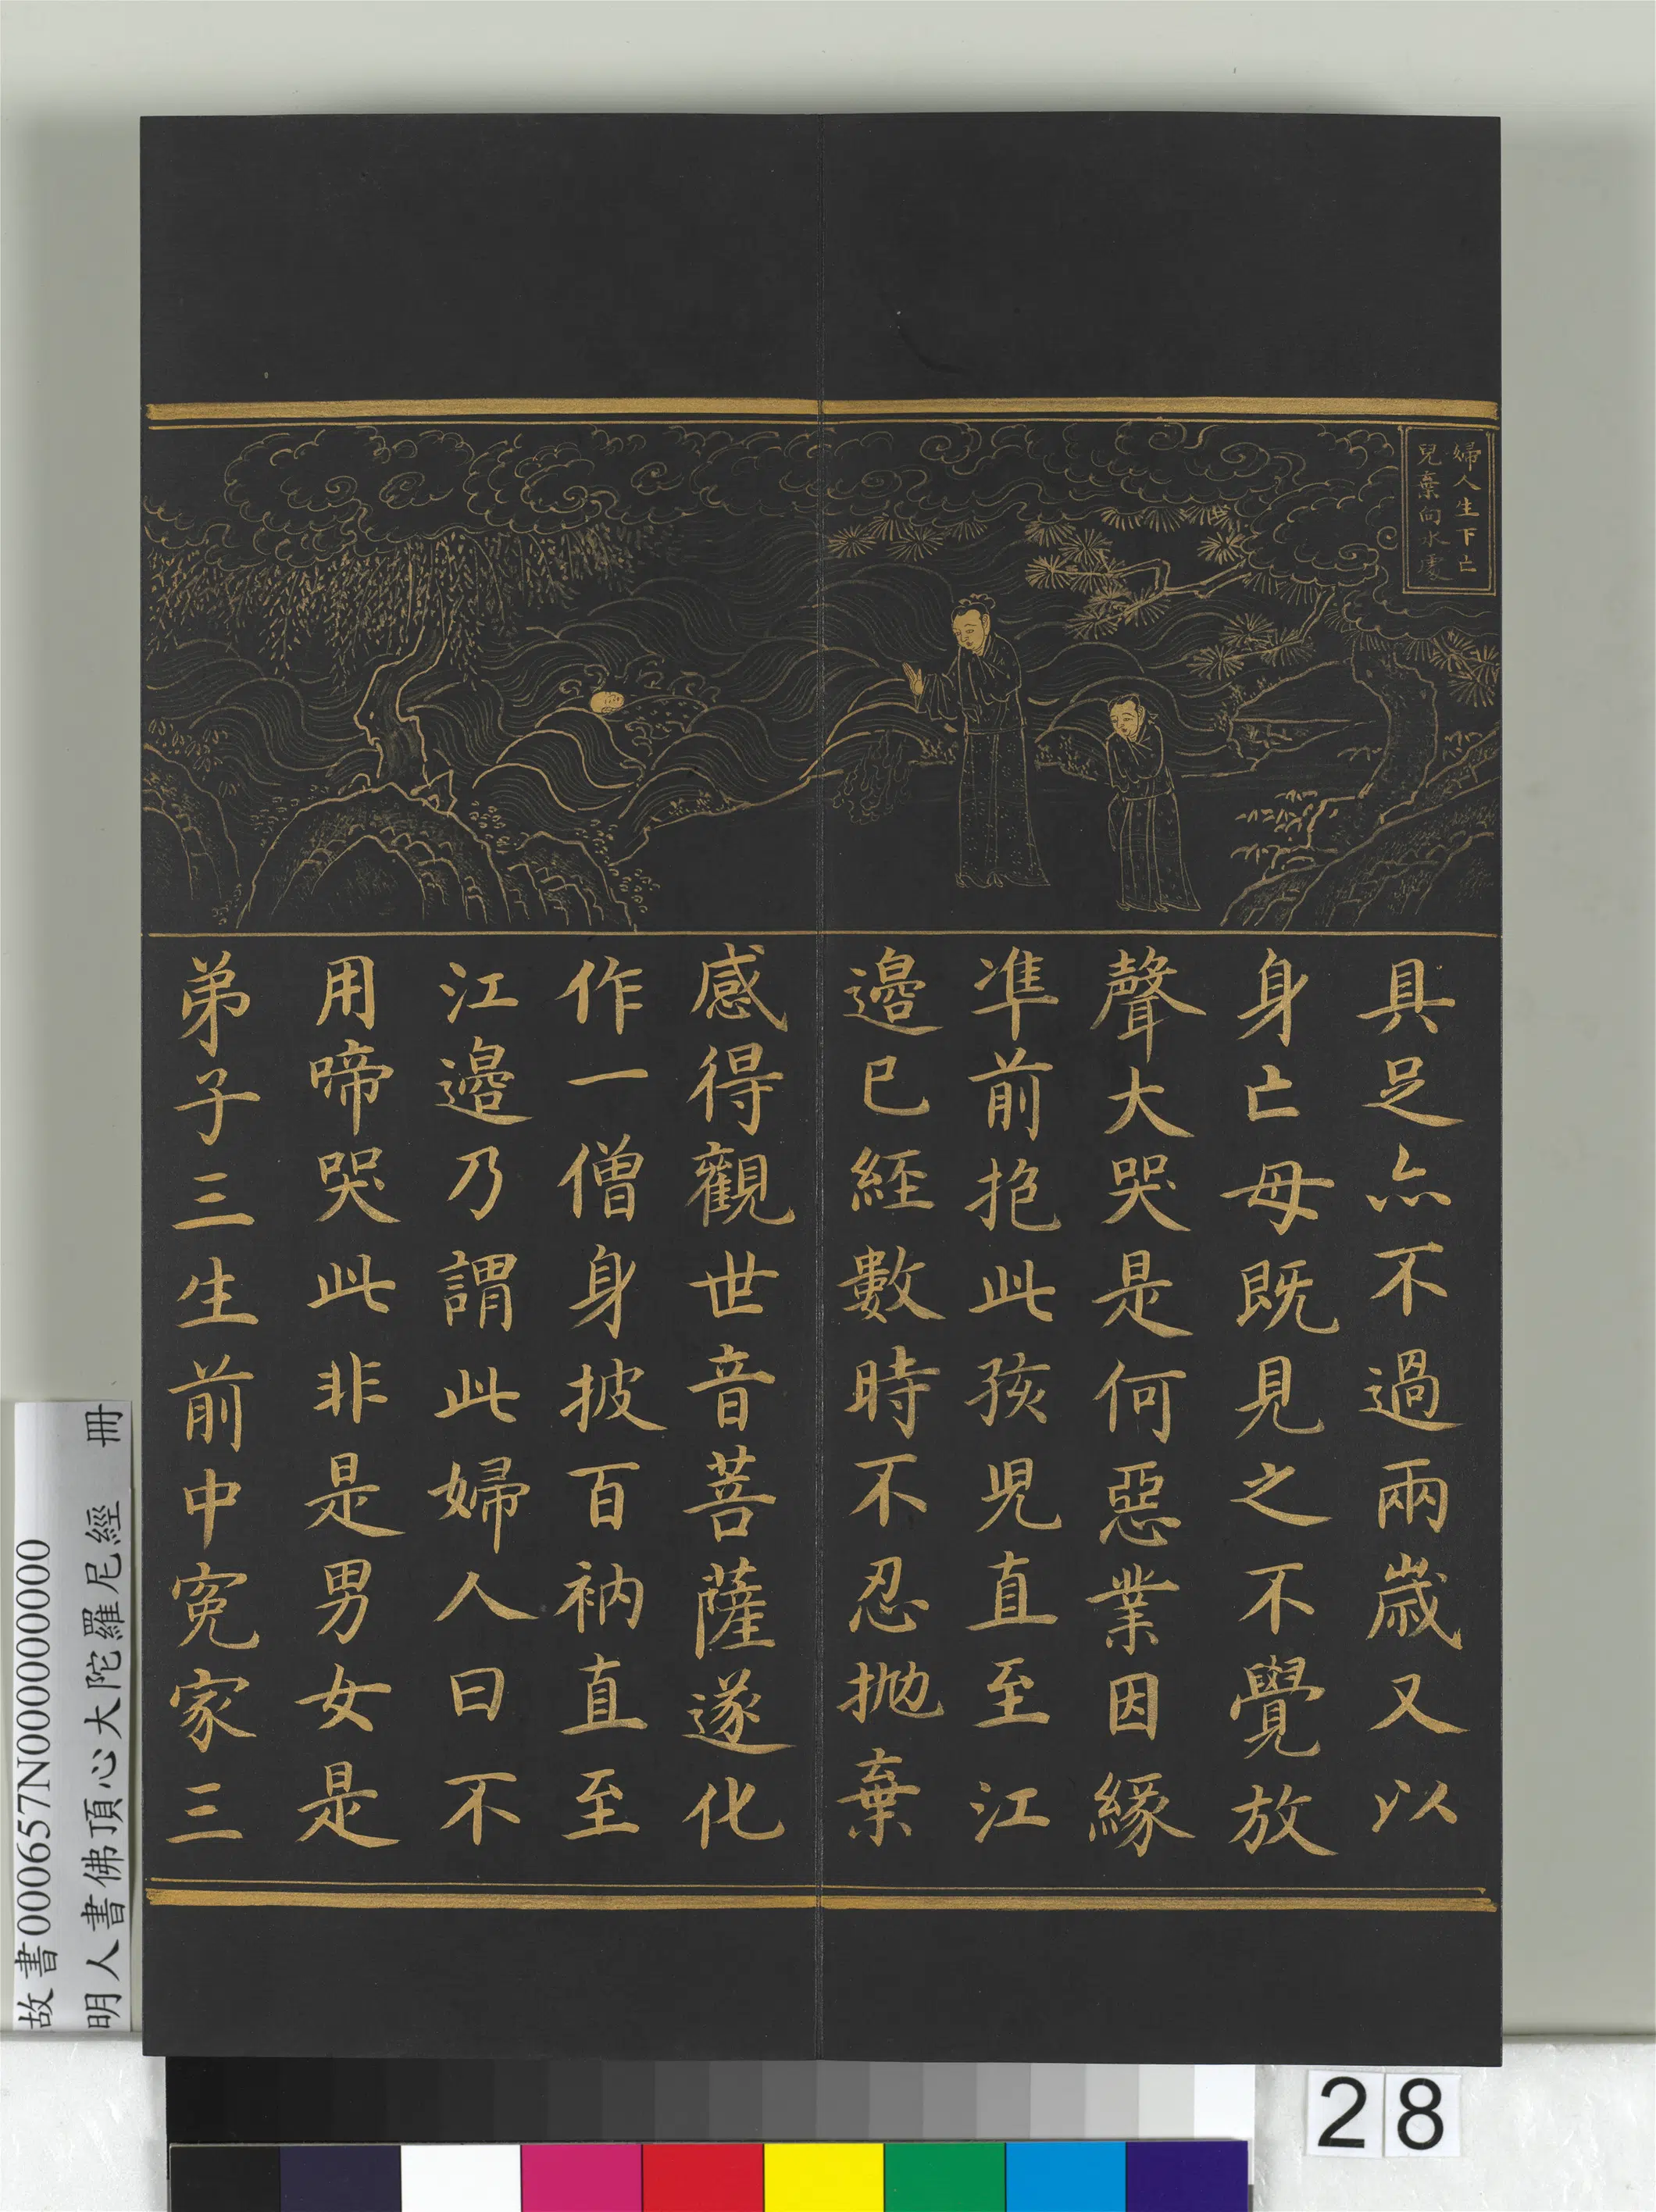 婦人生下亡
兒棄向水處
具足亦不過兩歲又以
身亡母既見之不覺放
聲大哭是何惡業因緣
准前抱此孩児直至江
邉已經數時不忍抛棄
感得觀世音菩薩遂化
作一僧身披百衲直至
江邉乃謂此婦人曰不
用啼哭此非是男女是
弟子三生前中寃家三
故書000657N000000000
明人書佛頂心大陀羅尼經　冊
28